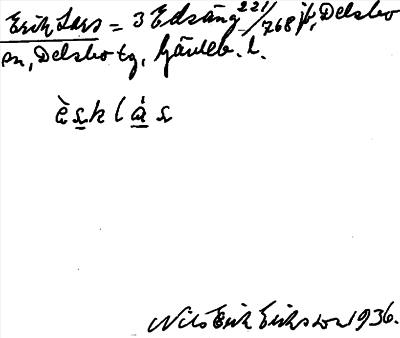 Erik Lars = 3 Edsäng 221/768 jb, Delsbo
sn, Delsbo tg, Gävleb. l.
è s k l á s
Nils Erik Eriksson 1936.